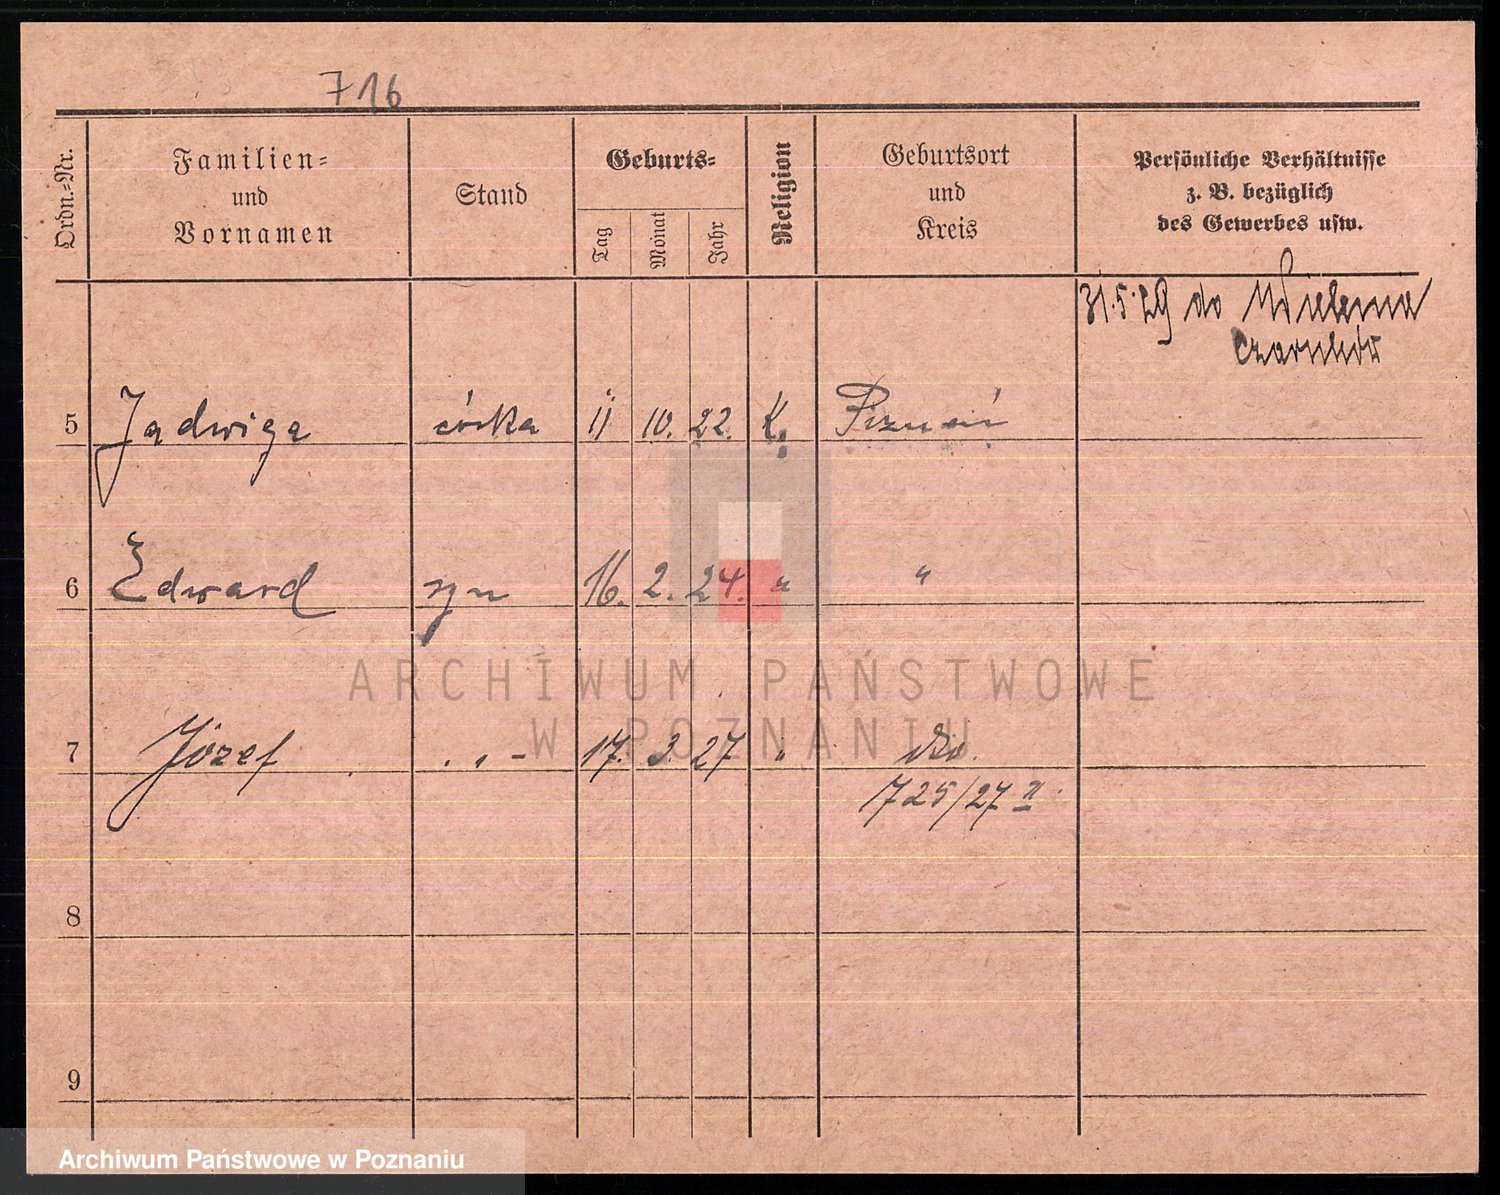 716
Ordn.=Nr.
Familien=
und
Vornamen
Stand
Geburts=
Tag
Monat
Jahr
Religion
Geburtsort
und
Kreis
Persönliche Verhältnisse
z. B. bezüglich
des Gewerbes usw.
31.5.29 do Wielenia
Czarnków
5 Jadwiga córka 11 10. 22. K. Poznań
6 Edward syn 16. 2. 24. " "
ARCHIWUM PAŃSTWOWE
W POZNANIU
7 Józef . , - 17. 3. 27 " dto.
725/27 II
8
9
Archiwum Państwowe w Poznaniu